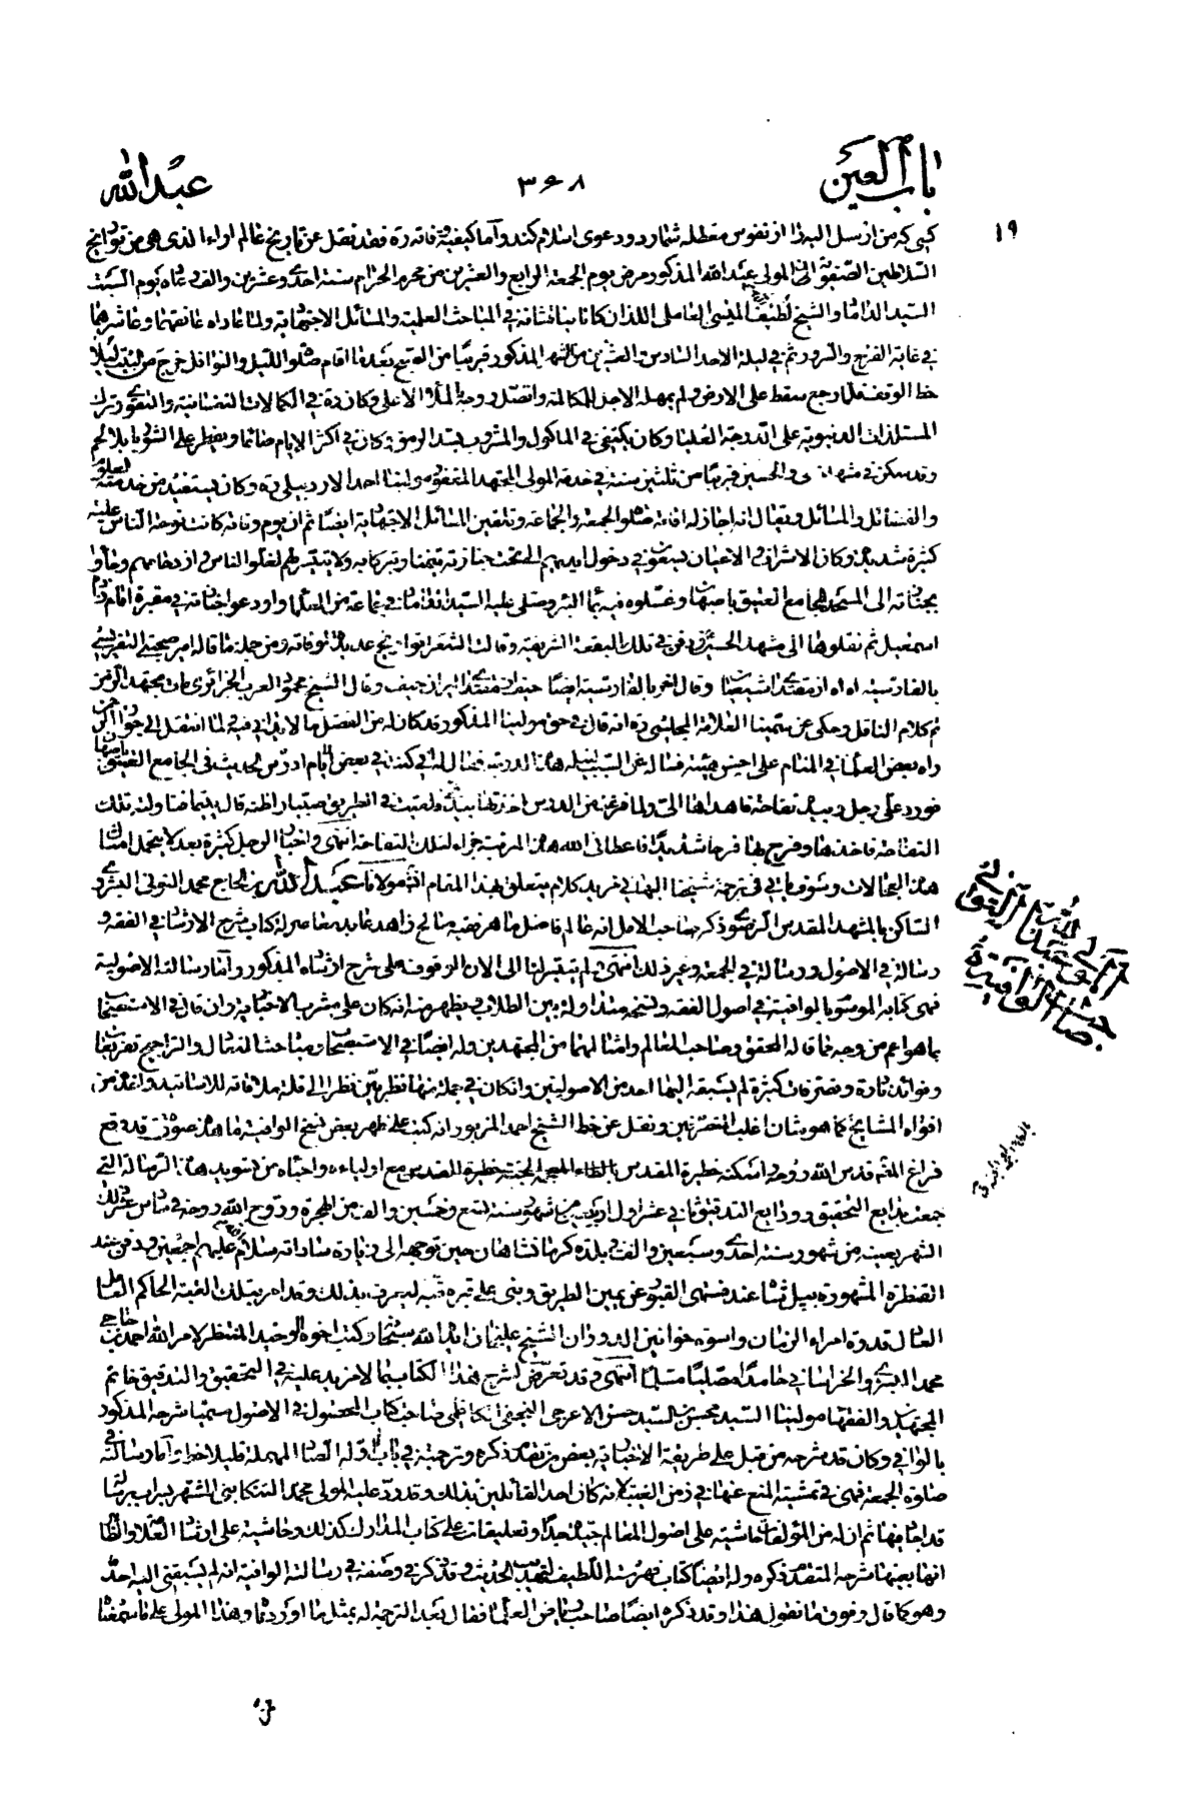 باب العين
٣۶٨
عبد الله
١٩
كسى كه من از سل البه را از نفوس مقطله شمارد ودعوى اسلام كند واما كيفية فاته ره فقد نقل عن تاريخ عالم اراء الذى هو من تواريخ
السلاطين الصفوية ان المولى عبد الله المذكور مرض يوم الجمعة الرابع والعشرين من محرم الحرام سنة احدى وعشرين والف وعاه يوم السبت
السيد الداماد والشيخ لطف الله الميسى العاملى اللذان كانا يناقشانه فى المباحث العلمية والمسائل الاجتهادية ولما عاداه عانقهما وعاشرهما
فى غاية الفرح والسرور ثم فى ليلة الاحد السادس والعشرين من الشهر المذكور قريبا من الصبح بعد ما اقام صلوة الليل والنوافل خرج من البيت ليلا
حظ الوقت فلما رجع سقط على الارض ولم يمهله الاجل للمكالمة واتصل روحه بالملأ الاعلى وكان ره فى الكمالات النفسانية والتقوى وترك
المستلذات الدنيوية على الدرجة العليا وكان يكتفى فى المأكول والمشروب بسد الرمق وكان فى اكثر الايام صائما ويفطر على الشوربا بلا لحم
وقد سكن فى مشهد على والحسين قريبا من ثلثين سنة فى خدمة المولى المجتهد المغفور مولينا احمد الاردبيلى ره وكان يستفيد من خدمته العلوم
والفضائل والمسائل ويقال انه اجاز له اقامة صلوة الجمعة والجماعة وتلقين المسائل الاجتهادية ايضا ثم ان يوم وفاته كانت نوحة الناس عليه
كثيرة شديدة وكان الاشراف والاعيان يسعون فى دخول ايديهم الى تحت جنازته تيمنا وتبركا به ولا يتيسر لهم لغلو الناس وازدحامهم وجاؤا
بجنازته الى المسجد الجامع العتيق باصبهان وغسلوه فيه بماء البئر وصلى عليه السيد الداماد فى جماعة من العلماء واودعوا جنازته فى مقبرة امام زاده
اسمعيل ثم نقلوها الى مشهد الحسين ودفن فى تلك البقعة الشريفة وقالت الشعراء تواريخ عديدة لوفاته ومن جملة ما قاله امير صحبتى التفريشى
بالفارسية اه اه از مقتداى شيعيان وقال اخر بالفارسية ايضا حيف از مقتداى ايران حيف وقال الشيخ محمود العرب الجزائرى مات مجتهد الزمن
تم كلام الناقل وحكى عن سمينا العلامة المجلسى ره انه قال فى حق مولينا المذكور قد كان له من الفضل ما لا مزيد عليه لما انتقل الى جوار الرحمن
راه بعض العلماء فى المنام على احسن هيئة فسأله عن السبب لنيله هذه المرتبة فقال له انى كنت فى بعض الايام ادرس الحديث فى الجامع العتيق باصبهان
فورد على رجل وبيده تفاحة فاهداها الى ولما فرغت من الدرس اخذتها بيدى ولقيت فى الطريق صبيا اظنه قال يتيما فناولته تلك
التفاحة فاخذها وفرح بها فرحا شديدا فاعطانى الله هذه المرتبة جزاء لتلك التفاحة انتهى واخبار الرجل كثيرة بعد لا يتحمل امثال
هذه العجالات وسوف ياتى فى ترجمة شيخنا البهائى مزيد كلام يتعلق بهذا المقام انش مولانا عبد الله بن الحاج محمد التونى البشروى
الساكن بالمشهد المقدس الرضوى ذكره صاحب الامل انه عالم فاضل ماهر فقيه صالح زاهد عابد معاصر له كتاب شرح الارشاد فى الفقه و
رسالة فى الاصول ورسالة فى الجمعة وغير ذلك انتهى ولم يتيسر لنا الى الان الوقوف على شرح ارشاده المذكور واما رسالته الاصولية
فهى كتابه الموسوم بالوافية فى اصول الفقه ونسخه متداولة بين الطلاب يظهر منه انه كان على مشرب الاخبارية وان قال فى الاستصحاب
بما هو اعم من وجه مما قاله المحقق وصاحب المعالم وامثالهما من المجتهدين وله ايضا فى الاستصحاب ومباحث التعادل والتراجيح تفريعات
وفوائد نادرة وتصرفات كثيرة لم يسبقه اليها احد من الاصوليين وان كان فى جملة منها نظر بين نظرا الى قلة ملاقاته للاساتيد واخذه من
افواه المشايخ كما هو شان اغلب المتصرفين ونقل عن خط الشيخ احمد المزبور انه كتب على ظهر بعض نسخ الوافية ما هذه صورته قد وقع
فراغ المصنف قدس الله روحه واسكنه حظيرة القدس مع اوليائه واحبائه من تسويد هذه الرسالة التى
جمعت بدايع التحقيق وودايع التدقيق ثانى عشر اول الربيعين من شهور سنة تسع وخمسين والف من الهجرة وروح الله روحه فى سادس عشر ذلك
الشهر بعينه من شهور سنة احدى وسبعين والف فى بلدة كرمانشاهان حين توجهه الى زيارة ساداته سلام الله عليهم اجمعين ودفن عند
القنطرة المشهورة بپل شاه عند منتهى القبور عن يمين الطريق وبنى على قبره قبة ليعرف بذلك وقد امر بتلك القبة الحاكم العادل
العالم قدوة امراء الزمان واسوة خوانين الدوران الشيخ عليخان ايده الله سبحانه وكتب اخوه الوحيد المنتظر لامر الله احمد بن حاجى
محمد البشروى الخراسانى حامدا مصليا مسلما انتهى وقد تعرض لشرح هذا الكتاب بما لا مزيد عليه فى التحقيق والتدقيق خاتم
المجتهدين والفقهاء مولينا السيد محسن بن السيد حسن الاعرجى النجفى الكاظمى صاحب كتاب المحصول فى الاصول وسميا شرحه المذكور
بالوافى وكان قد شرحه من قبل على طريقة الاخبارية بعض من تقدم ذكره وترجمته فى باب اوله الصاد المهملة فليلاحظ واما رسالته فى
صلوة الجمعة فهى فى تمشية المنع عنها فى زمن الغيبة لانه كان احد القائلين بذلك وقد رد عليه المولى محمد التنكابنى المشتهر بسراب برسالة
قد اجاد فيها ثم ان له من المؤلفات حاشية على اصول المعالم جيدة جدا وتعليقات على كتاب المدارك كذلك وحاشية على ارشاد العلامة والظاهر
انها بعينها شرحه المتقدم ذكره وله ايضا كتاب فهرسته اللطيف لتهذيب الحديث وقد ذكر فى وصفه فى رسالته الوافية انه لم يسبقنى اليه احد
وهو كما قال وفوق ما نقول هذا وقد ذكره ايضا صاحب رياض العلماء فقال بعد الترجمة له بمثل ما اوردناه وهذا المولى على ما سمعنا
المولى عبد الله التونى
صاحب الوافية